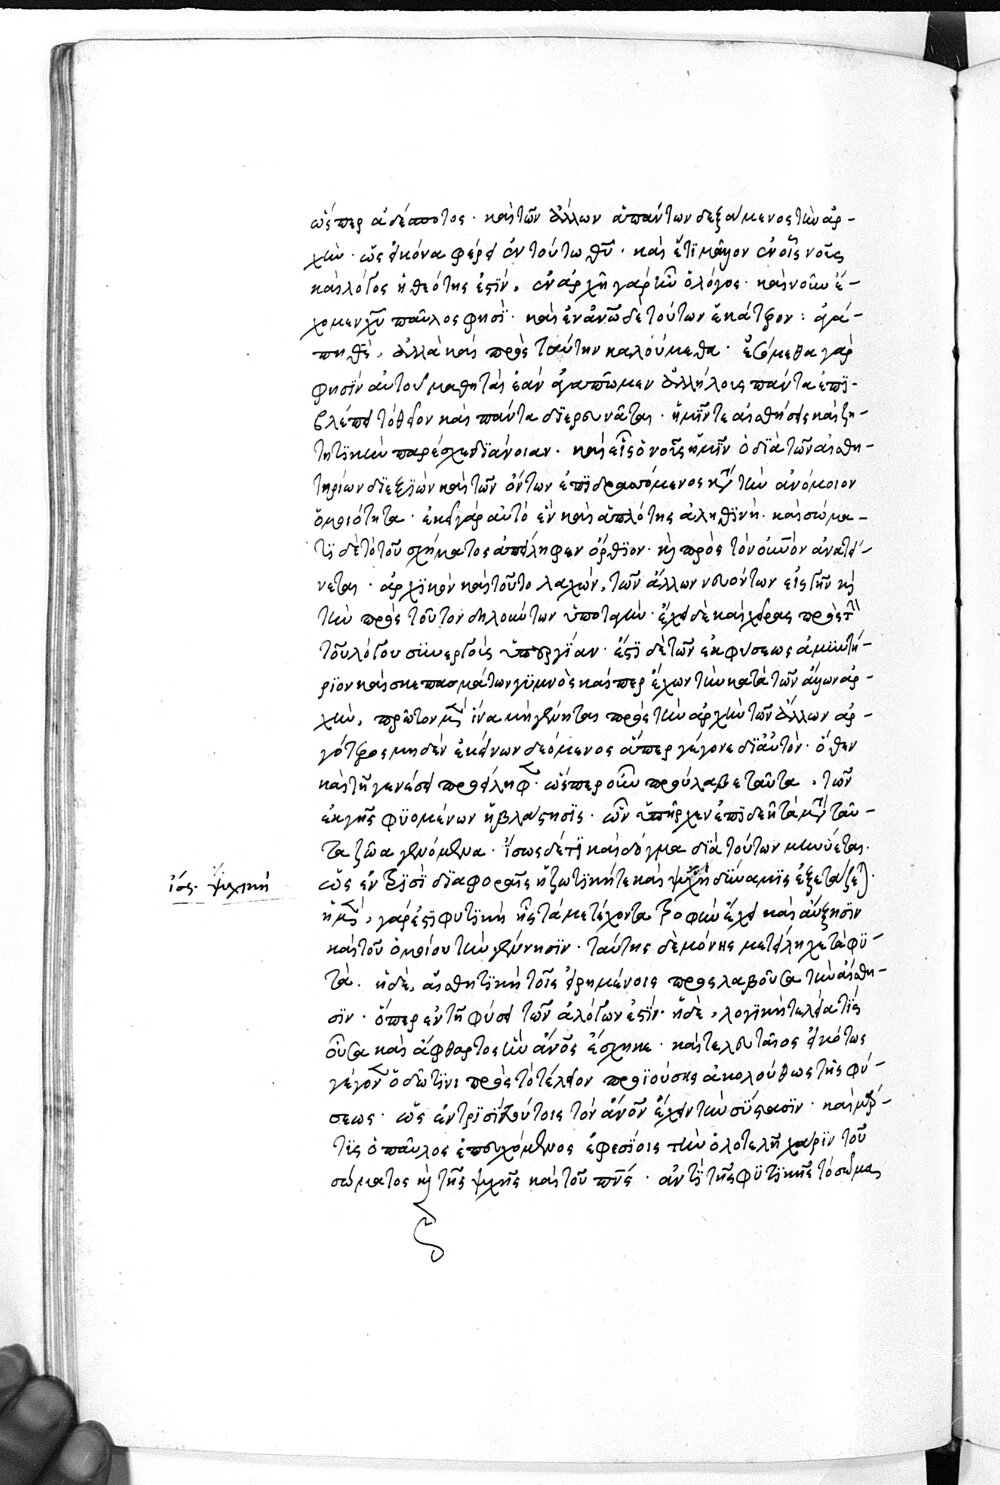 ὥσπερ ἀδέσποτος · καὶ τῶν ἄλλων ἁπάντων δεξάμενος τὴν ἀρ-
χήν · ὡς εἰκόνα φέρει ἐν τούτω θῦ · καὶ ἔτι μᾶλλον ἐν οἷς νοῦς
καὶ λόγος ἡ θεότης ἐστίν · ἐν ἀρχῆ γὰρ ἦν ὁ λόγος · καὶ νοῦν ἔ-
χομεν χῦ παῦλος φησί · καὶ ἐν ἀνῶ δε τούτων ἑκάτερον : ἀγά-
πη θς · ἀλλὰ καὶ πρὸς ταύτην καλούμεθα · ἐσόμεθα γὰρ
φησὶν αὐτοῦ μαθηταὶ ἐὰν ἀγαπῶμεν ἀλλήλοις πάντα ἐπι-
βλέπει τὸ θεῖον καὶ πάντα διερευνᾶται · ἡμῖν τε αἰσθήσεις καὶ ζη-
τητικὴν παρέσχε διάνοιαν · καὶ εἷς ὁ νοῦς ἡμῖν ὁ διὰ τῶν αἰσθη-
τηρίων διεξιὼν καὶ τῶν ὄντων ἐπιδραττόμενος κατὰ τὴν ἀνόμοιον
ὁμοιότητα · ἐκεῖ γὰρ αὐτὸ ἓν καὶ ἁπλότης ἀληθινή · καὶ σώμα-
τι δὲ τὸ τοῦ σχήματος ἀπείληφεν ὄρθιον · καὶ πρὸς τὸν οὐνὸν ἀνατεί-
νεται · ἀρχικὸν καὶ τοῦτο λαχών, τῶν ἄλλων νευόντων εἰς γῆν καὶ
τὴν πρὸς τοῦτον δηλούντων ὑποταγήν · ἔχει δὲ καὶ χεῖρας πρὸς τὴν
τοῦ λόγου συνεργοὺς ὑπουργίαν · ἔστι δὲ τῶν ἐκφύσεως ἀμυντη-
ρίων καὶ σκεπασμάτων γυμνὸς καίπερ ἔχων τὴν κατὰ τῶν ἄλλων ἀρ-
χήν, πρῶτον μὲν ἵνα μὴ γένηται πρὸς τὴν ἀρχὴν τῶν ἄλλων ἀρ-
γότερος μηδὲν ἐκείνων δεόμενος ἅπερ γέγονε δι αὐτόν · ὅθεν
καὶ τῆ γενέσει προείληφ · ὥσπερ οὖν προύλαβε ταῦτα · τῶν
ἐκ γῆς φυομένων ἡ βλάστησις · ὧν ὑπῆρχεν ἐπιδεῆ τὰ μετὰ ταῦ-
τα ζῶα γενόμενα · ἴσως δέ τι καὶ δόγμα διὰ τούτων μηνύεται.
ἰσ. ψυχική
ὡς ἐν τρισὶ διαφοραῖς ἡ ζωτικήτε καὶ ψυχικὴ δύναμις ἐξετάζεται.
ἡ μὲν, γάρ ἐστι φυτικὴ ἧς τὰ μετέχοντα τροφὴν ἔχει καὶ αὔξησιν
καὶ τοῦ ὁμοίου τὴν γέννησιν · ταύτης δὲ μόνης μετείληχε τὰ φυ-
τά. ἡ δὲ, αἰσθητικὴ τοῖς εἰρημένοις προσλαβοῦσα τὴν αἴσθη-
σιν · ὅπερ ἐν τῆ φύσει τῶν ἀλόγων ἐστίν · ἡ δὲ, λογικὴ τελεία τίς
οὖσα καὶ ἄφθαρτος ἣν ἄνος ἔσχηκε · καὶ τελευταῖος εἰκότως
γέγον ὁδῶ τινι πρὸς τὸ τέλειον προϊούσης ἀκολούθως τῆς φύ-
σεως · ὡς ἐν τρισὶ τούτοις τὸν ἄνον ἔχειν τὴν σύστασιν · καὶ μάρ-
τυς ὁ παῦλος ἐπευχόμενος ἐφεσίοις τὴν ὁλοτελῆ χάριν τοῦ
σώματος καὶ τῆς ψυχῆς καὶ τοῦ πνς · ἀντὶ τῆς φυτικῆς τὸ σῶμα